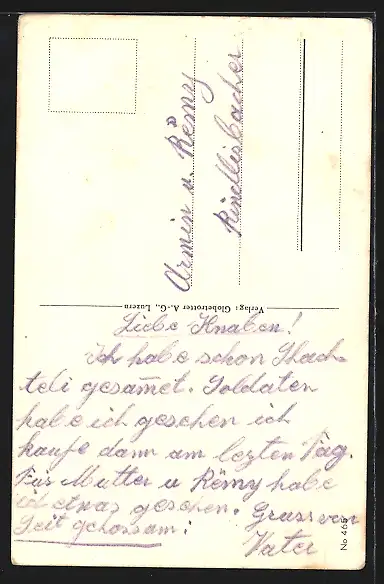 Armin u. Rémy
Rindlisbacher
Verlag: Globetrotter A.-G., Luzern
Liebe Knaben!
Ich habe schon Schach-
teli gesam̄et. Soldaten
habe ich gesehen ich
kaufe dann am lezten Tag.
Für Mutter u Rémy habe
ich etwas gesehen. Gruss von
Seit gehorsam! Vater
No 465